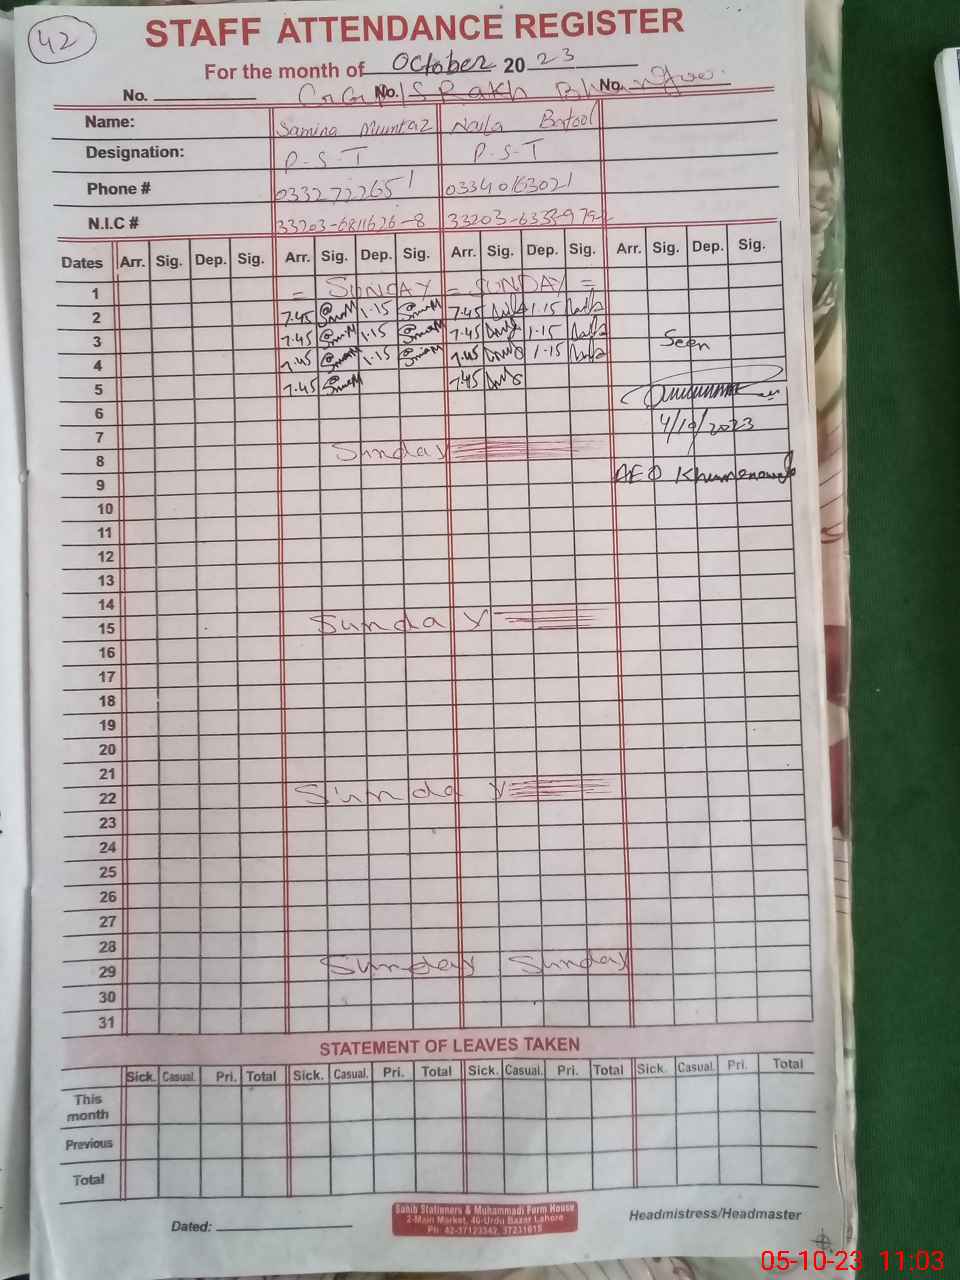 42
STAFF ATTENDANCE REGISTER
For the month of October 2023
No. No. No.
Name: Samina Mumtaz Naila Batool
Designation: P-S-T P-S-T
Phone # 03327272651 03340163021
N.I.C # 33203-6811626-8
Dates Arr. Sig. Dep. Sig. Arr. Sig. Dep. Sig. Arr. Sig. Dep. Sig. Arr. Sig. Dep. Sig.
1 = SUNDAY = SUNDAY =
2 7.45 1.15 7.45 1.15
3 7.45 1.15 7.45 1.15 Seen
4 7.45 1.15 7.45 1.15
5 7.45 7.45
6 4/10/2023
7
8 Sunday
9 AEO
10
11
12
13
14
15 Sunday
16
17
18
19
20
21
22 Sunday
23
24
25
26
27
28
29 Sunday Sunday
30
31
STATEMENT OF LEAVES TAKEN
Sick. Casual. Pri. Total Sick. Casual. Pri. Total Sick. Casual. Pri. Total Sick. Casual. Pri. Total
This
month
Previous
Total
Dated:
Sahib Stationers & Muhammadi Form House
2-Main Market, 40-Urdu Bazar Lahore
Ph: 42-37123342, 37231615
Headmistress/Headmaster
05-10-23 11:03